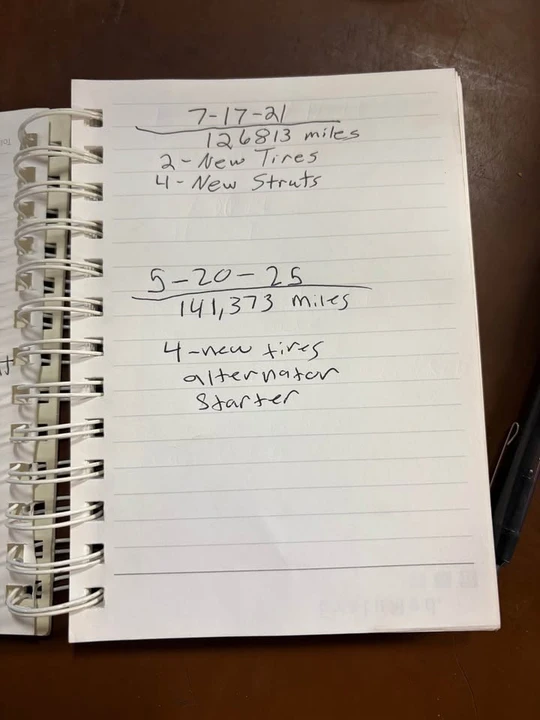 7-17-21
126813 miles
2-New Tires
4-New Struts
5-20-25
141,373 miles
4-new tires
alternator
Starter